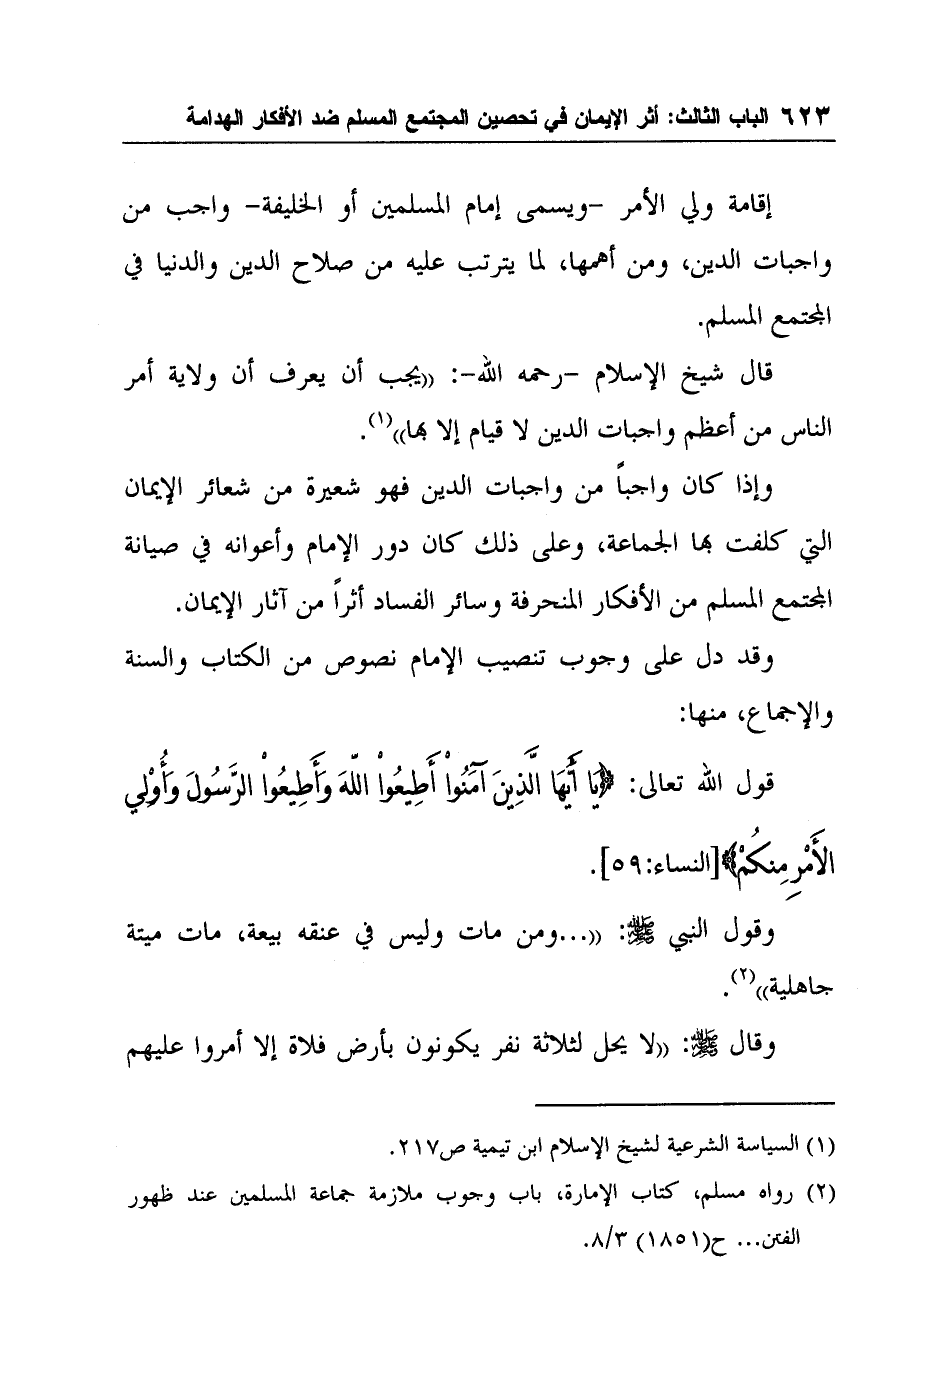 ٦٢٣ الباب الثالث: أثر الإيمان في تحصين المجتمع المسلم ضد الأفكار الهدامة
إقامة ولي الأمر –ويسمى إمام المسلمين أو الخليفة– واجب من
واجبات الدين، ومن أهمها، لما يترتب عليه من صلاح الدين والدنيا في
المجتمع المسلم.
قال شيخ الإسلام –رحمه الله–: ((يجب أن يعرف أن ولاية أمر
الناس من أعظم واجبات الدين لا قيام إلا بها))(١).
وإذا كان واجباً من واجبات الدين فهو شعيرة من شعائر الإيمان
التي كلفت بها الجماعة، وعلى ذلك كان دور الإمام وأعوانه في صيانة
المجتمع المسلم من الأفكار المنحرفة وسائر الفساد أثراً من آثار الإيمان.
وقد دل على وجوب تنصيب الإمام نصوص من الكتاب والسنة
والإجماع، منها:
قول الله تعالى: ﴿يَا أَيُّهَا الَّذِينَ آمَنُواْ أَطِيعُواْ اللّهَ وَأَطِيعُواْ الرَّسُولَ وَأُوْلِي
الأَمْرِ مِنكُمْ﴾[النساء:٥٩].
وقول النبي ﷺ: ((...ومن مات وليس في عنقه بيعة، مات ميتة
جاهلية))(٢).
وقال ﷺ: ((لا يحل لثلاثة نفر يكونون بأرض فلاة إلا أمروا عليهم
(١) السياسة الشرعية لشيخ الإسلام ابن تيمية ص٢١٧.
(٢) رواه مسلم، كتاب الإمارة، باب وجوب ملازمة جماعة المسلمين عند ظهور
الفتن... ح(١٨٥١) ٨/٣.